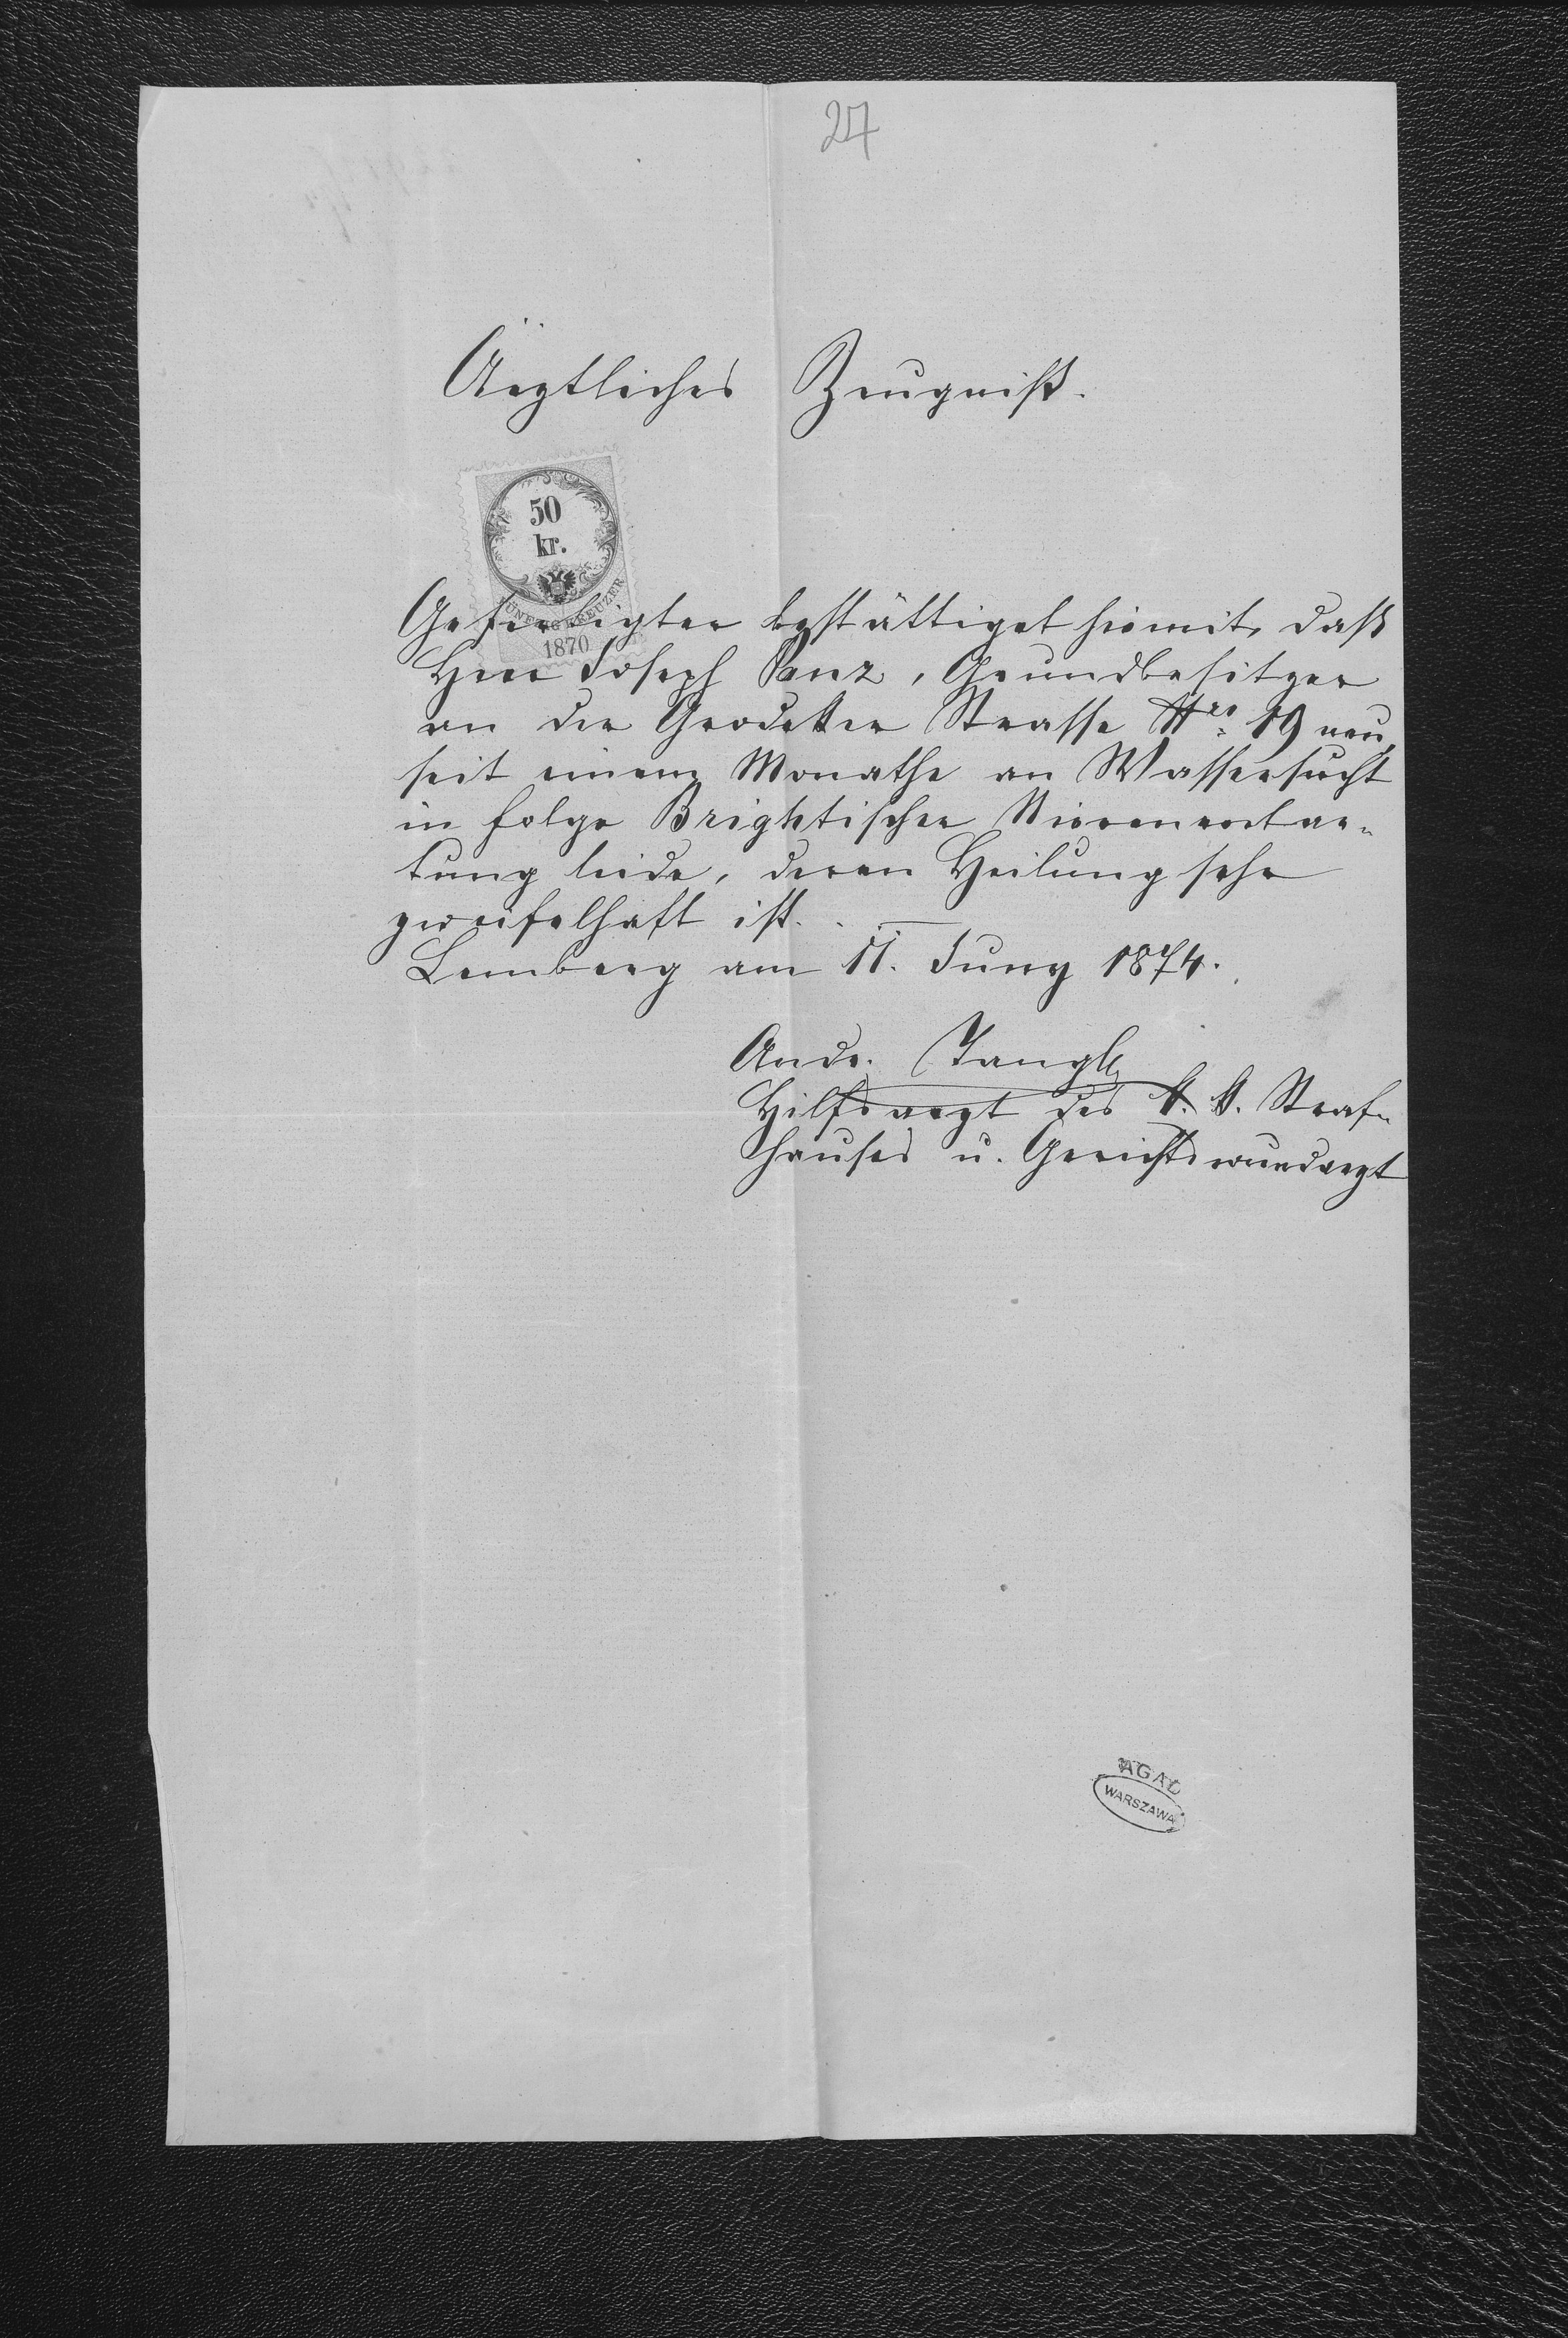 27
Äerztliches Zeugniß.
50
kr.
FÜNFZIG KREUZER
1870
Gefertigter bestättiget hiemit, daß
Herr Joseph Panz, Grundbesitzer
an der Grodeker Strasse Nro 19 neu,
seit einem Monathe an Wassersucht
in folge Brightischer Nierenentar-
tung leide, deren Heilung sehr
zweifelhaft ist.
Lemberg am 11. Juny 1874.
Andr. Tangl
Hilfsarzt des k. k. Straf-
hauses u. Gerichtswundarzt
AGAD
WARSZAWA